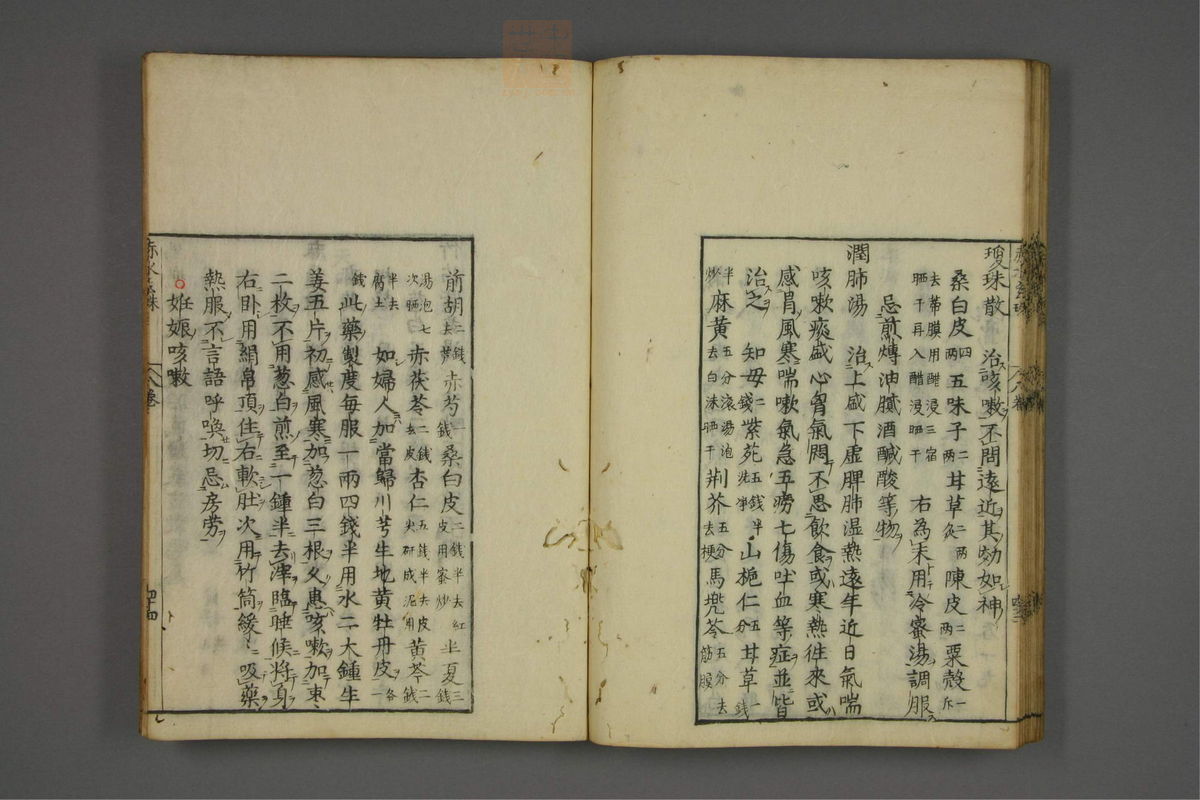 瓊珠散　治咳嗽不問遠近其効如神
桑白皮四兩五味子二兩甘草二兩炙陳皮二兩粟殼一斤
去蒂膜用醋浸三宿
晒干再入醋浸晒干　右為末用冷蜜湯調服
忌煎煿油膩酒醎酸等物
潤肺湯　治上盛下虚脾肺湿熱遠年近日氣喘
咳嗽痰盛心胷氣悶不思飲食或寒熱徃來或
感冒風寒喘嗽氣急五癆七傷吐血等症並皆
治之　知母二錢紫苑五錢洗净山梔仁五分甘草一錢
半炒麻黄五分滚湯泡去白沫晒干荆芥五分去梗馬兜苓五分去筋膜
前胡二錢去蘆赤芍一錢桑白皮二錢半去紅皮用蜜炒半夏三錢
湯泡七次晒赤茯苓二錢去皮杏仁五錢半去皮尖研成泥用黄芩二錢
半去腐土　如婦人加當歸川芎生地黄牡丹皮各一
錢此藥製度毎服一兩四錢半用水二大鍾生
姜五片初感風寒加葱白三根久患咳嗽加枣
二枚不用葱白煎至一鍾半去滓臨睡候将身
右卧用絹帛頂住右軟肚次用竹筒緩々吸藥
熱服不言語呼喚切忌房労
妊娠咳嗽
八卷
四十四